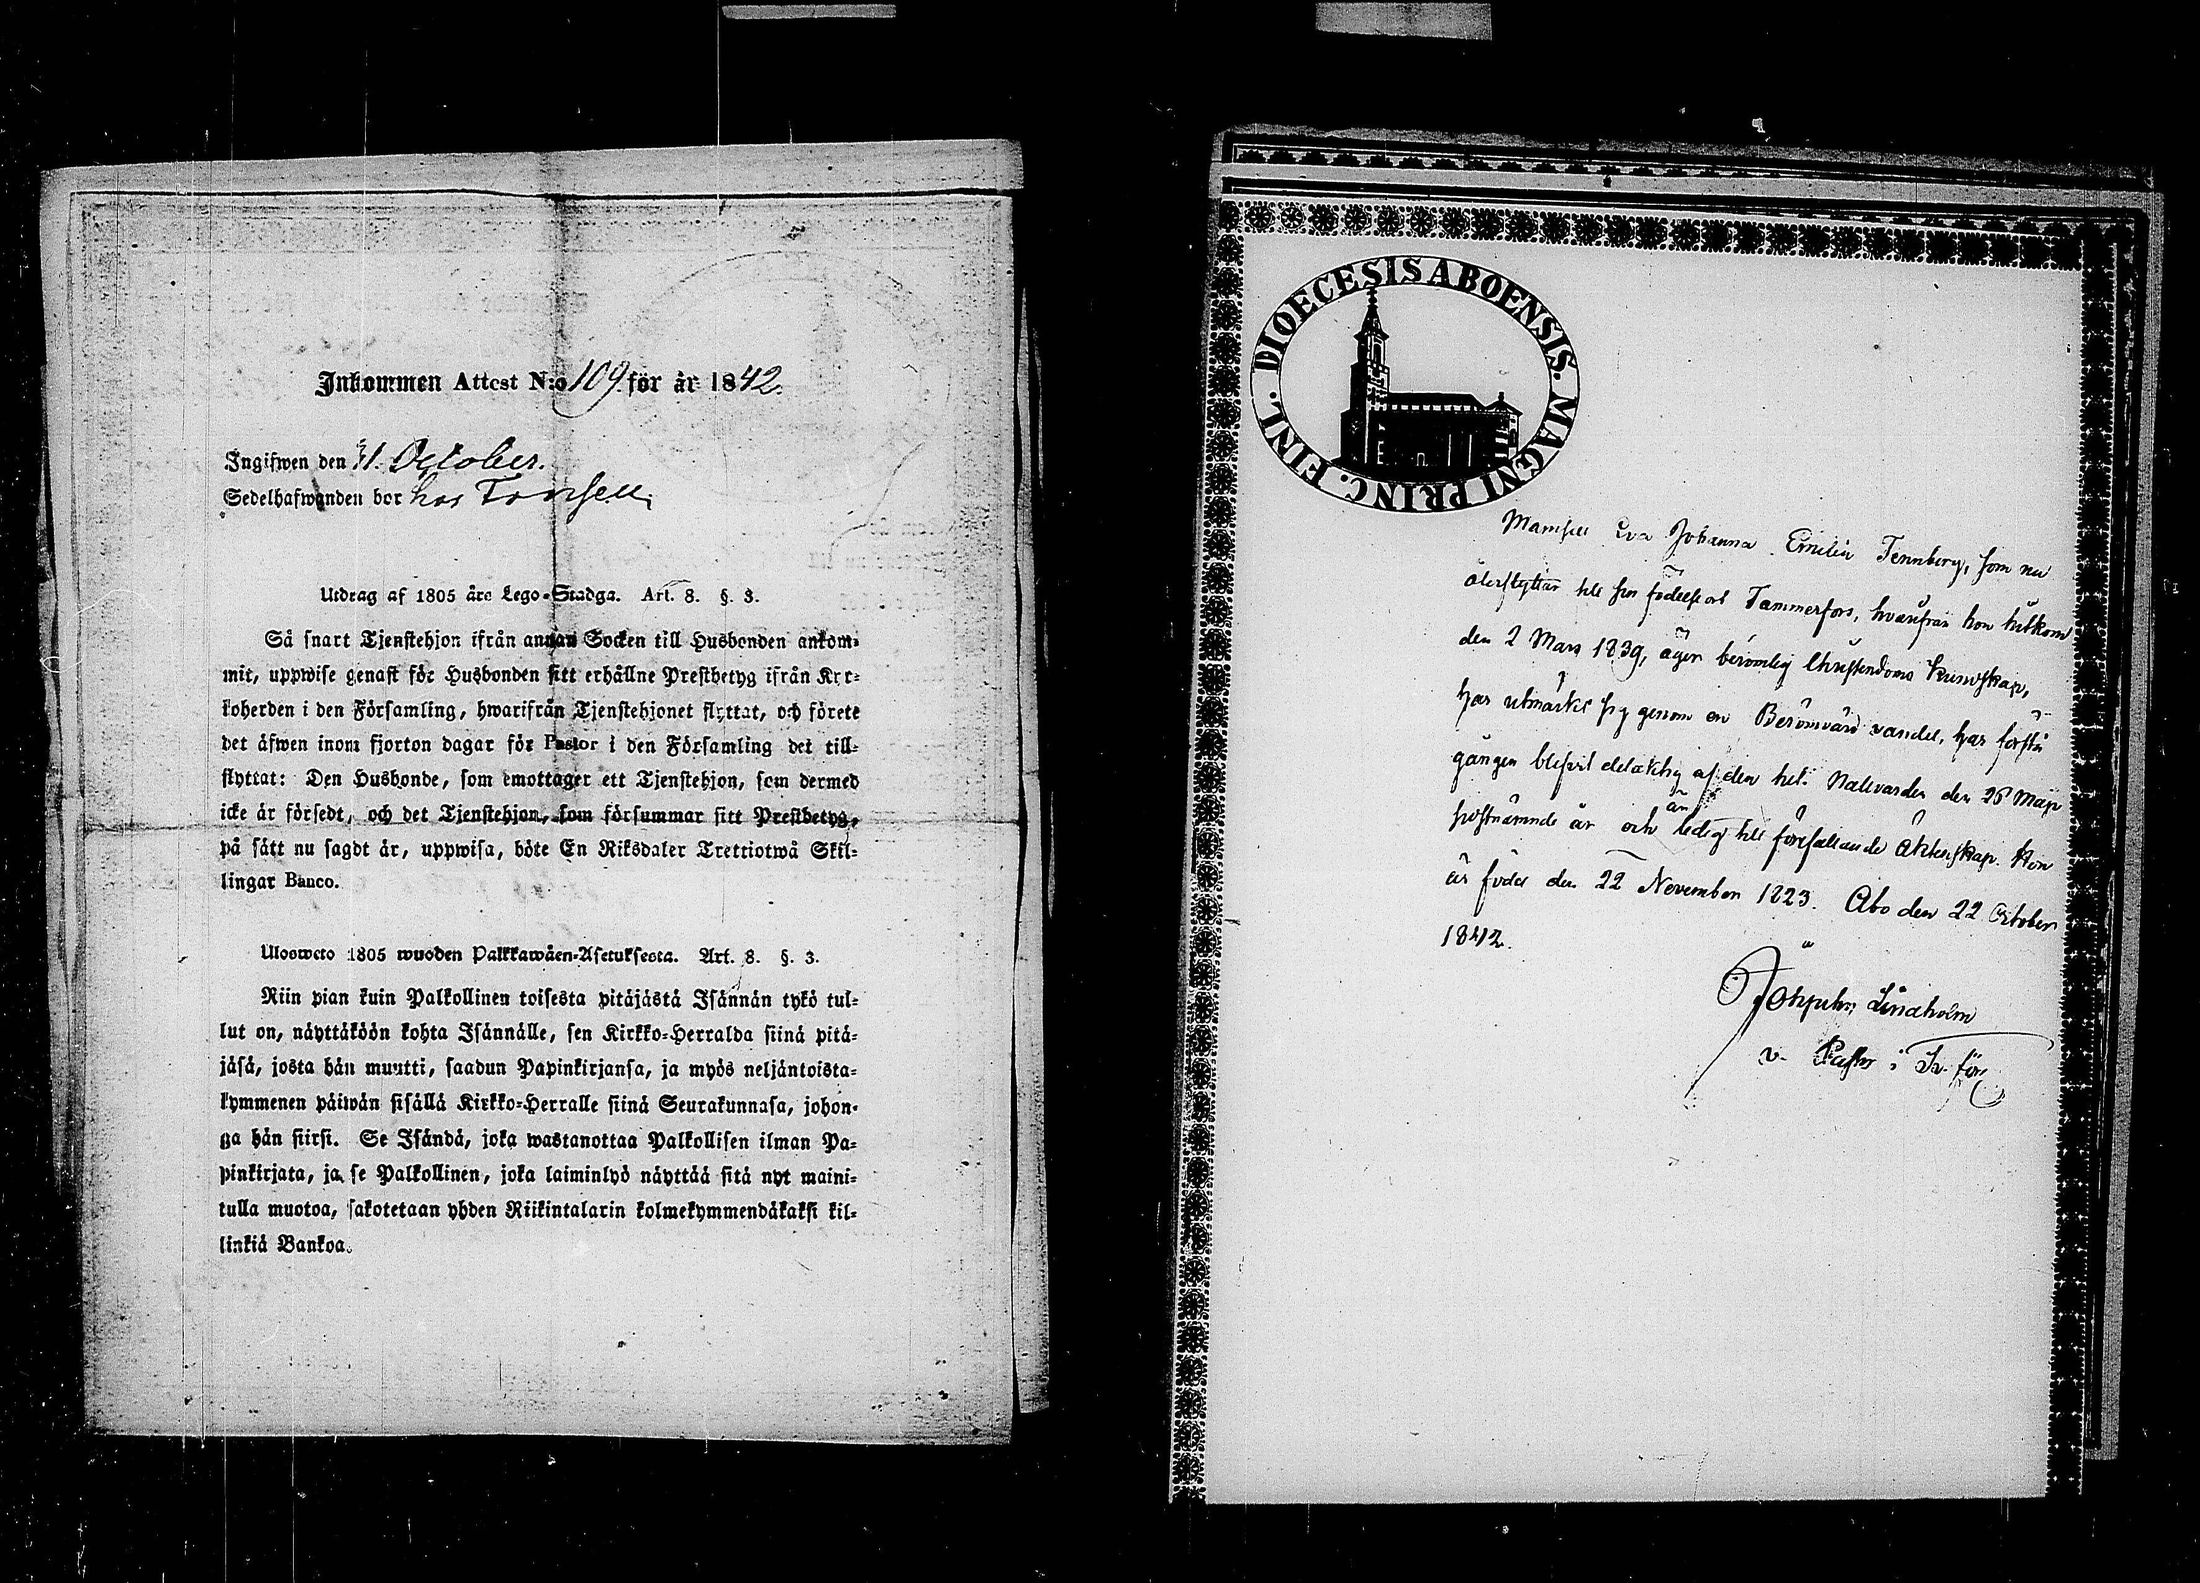 Inkommen Attest N:o 109 för år 1842.
Ingifwen den 31. October.
Sedelhafwanden bor hos
Utdrag af 1805 års Lego-Stadga. Art. 8. §. 3.
Så snart Tjenstehjon ifrån annan Socken till Husbonden ankom-
mit, uppwise genast för Husbonden sitt erhållne Prestbetyg ifrån Kyr-
koherden i den Församling, hwarifrån Tjenstehjonet flyttat, och förete
det äfwen inom fjorton dagar för Pastor i den Församling det till-
flyttat: Den Husbonde, som emottager ett Tjenstehjon, som dermed
icke är försedt, och det Tjenstehjon, som försummar sitt Prestbetyg,
på sätt nu sagdt är, uppwisa, böte En Riksdaler Trettiotwå Skil-
lingar Banco.
Ulosweto 1805 wuoden Palkkawäen-Asetuksesta. Art. 8. §. 3.
Niin pian kuin Palkollinen toisesta pitäjästä Isännän tykö tul-
lut on, näyttäköön kohta Isännälle, sen Kirkko-Herralda siinä pitä-
jäsä, josta hän muutti, saadun Papinkirjansa, ja myös neljäntoista-
kymmenen päiwän sisällä Kirkko-Herralle siinä Seurakunnasa, johon-
ga hän siirsi. Se Isändä, joka wastanottaa Palkollisen ilman Pa-
pinkirjata, ja se Palkollinen, joka laiminlyö näyttää sitä nyt maini-
tulla muotoa, sakotetaan yhden Riikintalarin kolmekymmendäkaksi kil-
linkiä Bankoa.
DIOECESIS ABOENSIS. MAGNI PRINC. FINL.
Mamsell Eva Johanna Emilia Tennberg, som nu
återflyttar till sin födelseort Tammerfors, hvarifrån hon hitkom
den 2 Mars 1839, äger berömlig Christendoms kunskap,
har utmärkt sig genom en Berömvärd vandel, har första
gången blifvit delaktig af den hel. Nattvarden den 26 Maji
sistnämnde år och är ledig till förefallande Äktenskap. Hon
är född den 22 November 1823. Åbo den 22 October
1842.
Lindholm
v. Pastor i Sv. förs.